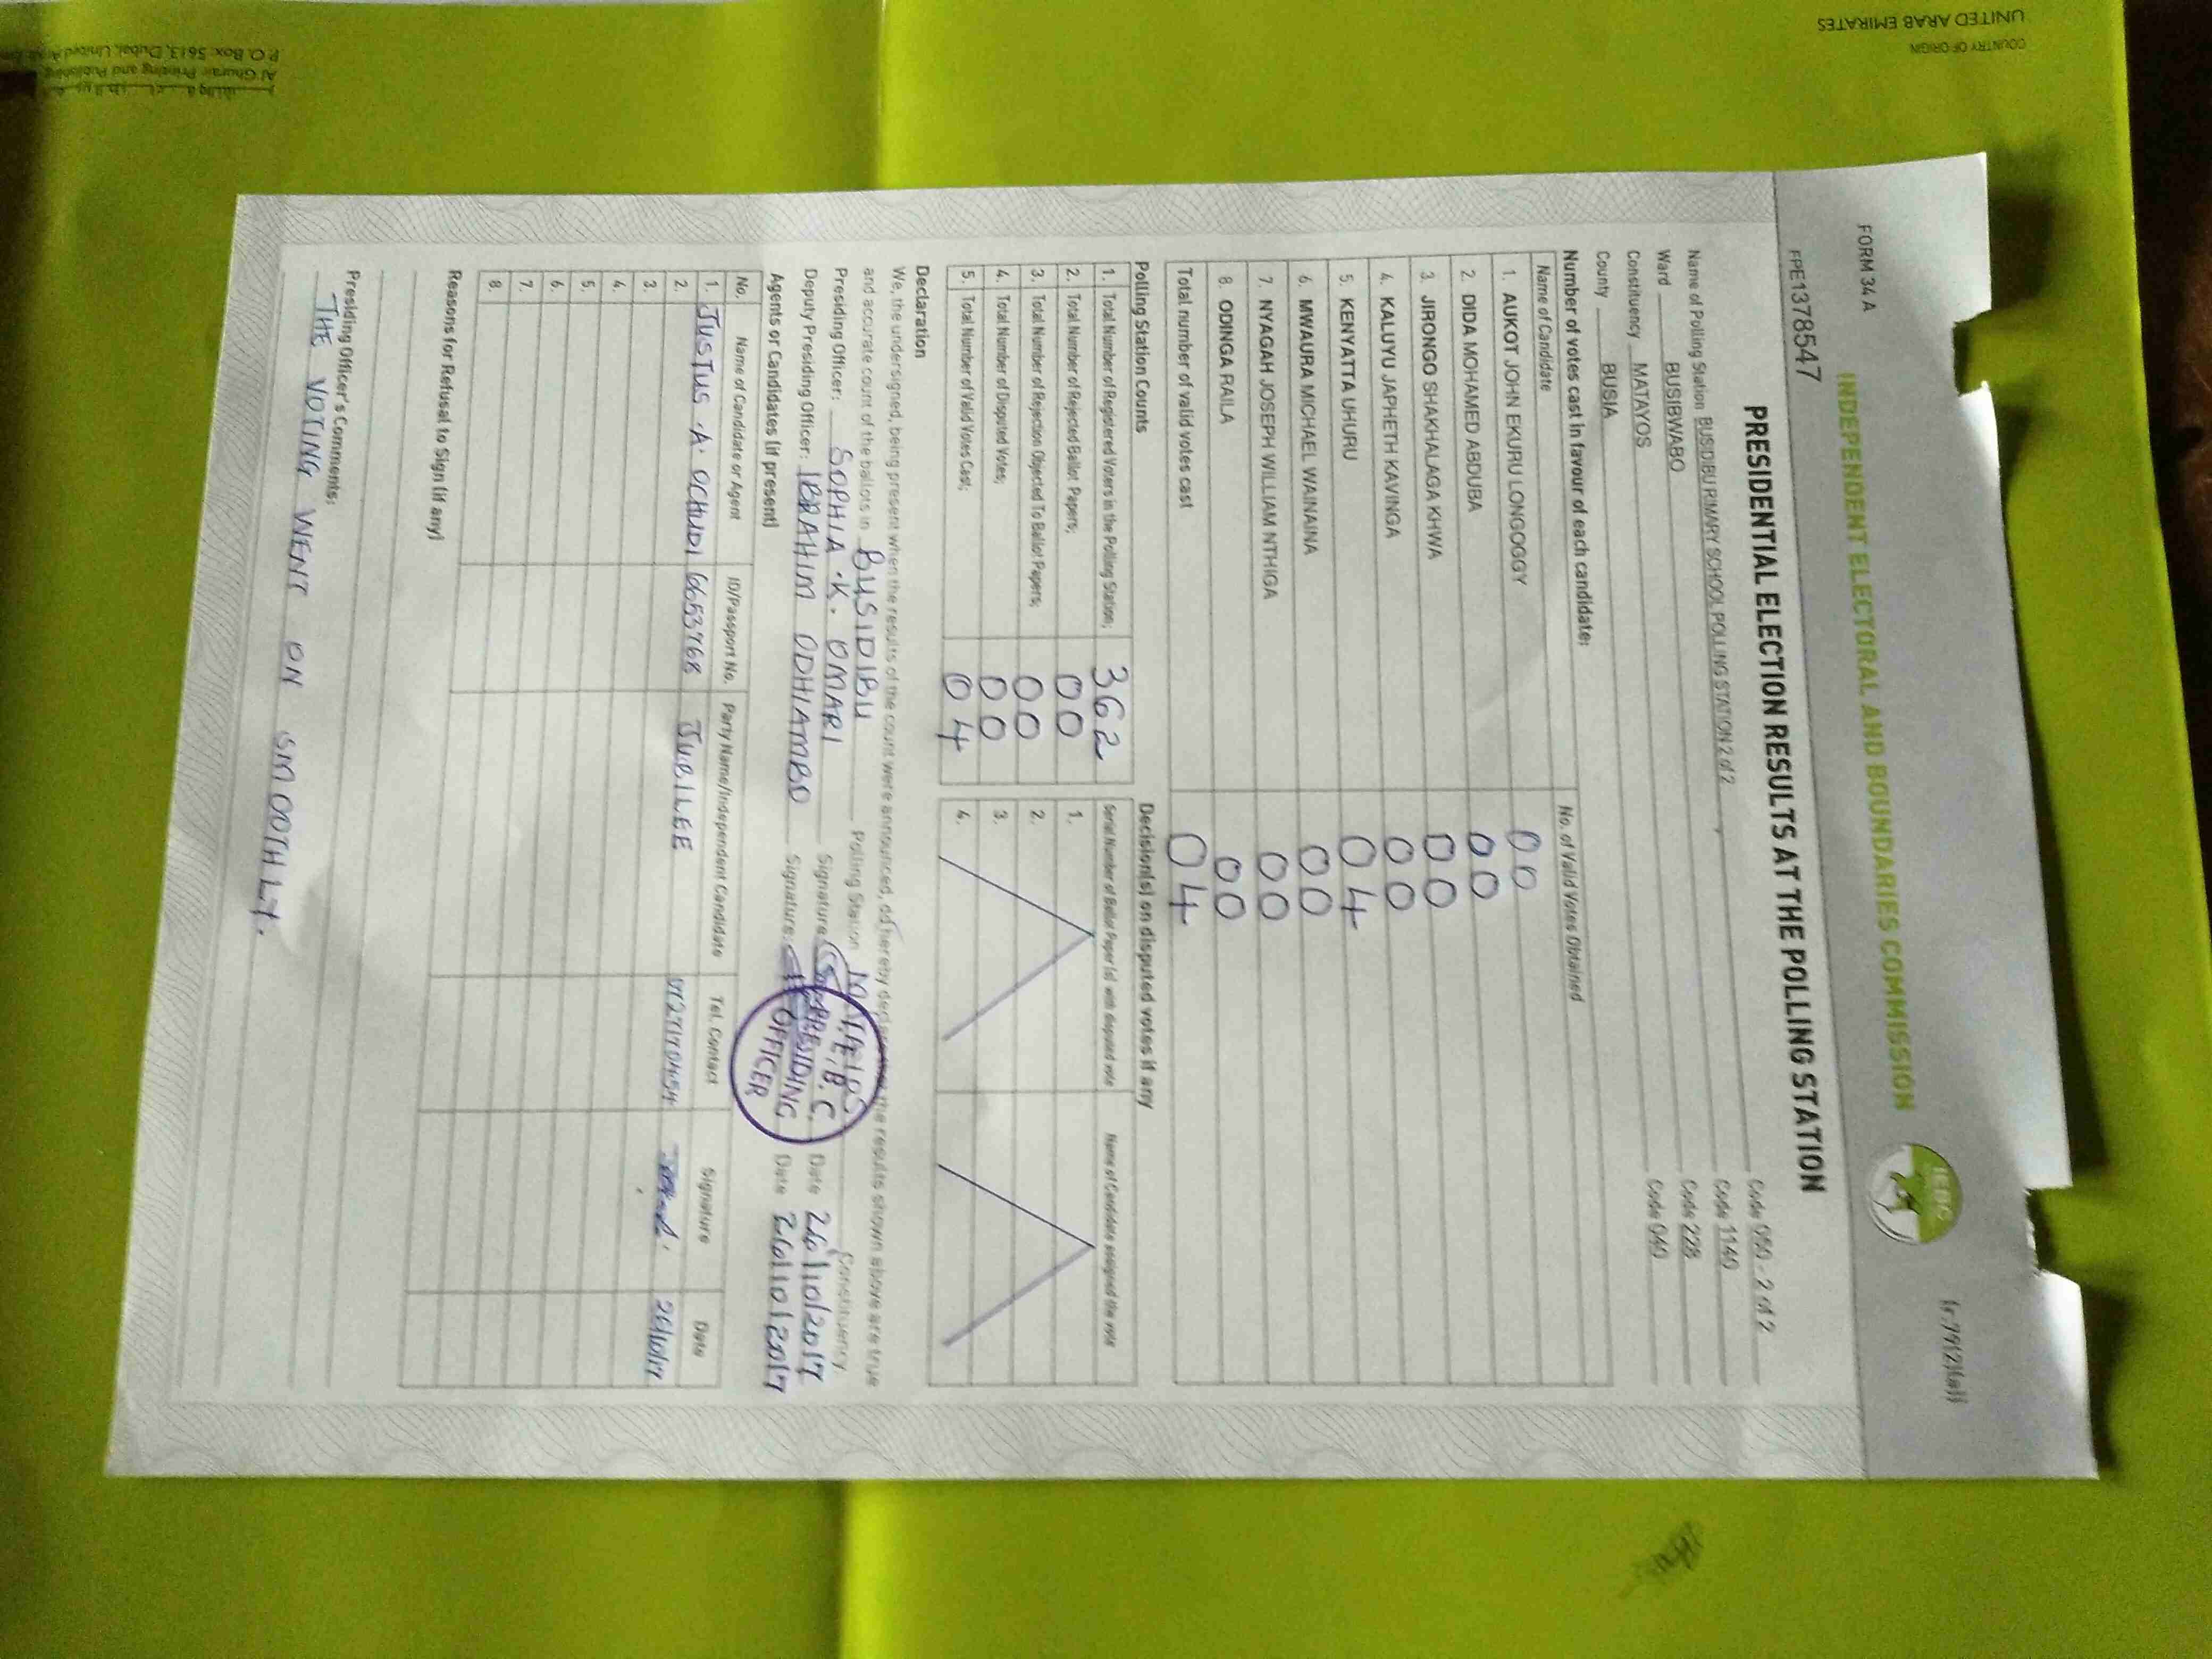 FORM 34 A
(r.79(2)(a))
INDEPENDENT ELECTORAL AND BOUNDARIES COMMISSION
IEBC
FPE1378547
PRESIDENTIAL ELECTION RESULTS AT THE POLLING STATION
Name of Polling Station BUSIDIBU RIMARY SCHOOL POLLING STATION 2 of 2 Code 050 - 2 of 2
Ward BUSIBWABO Code 1140
Constituency MATAYOS Code 228
County BUSIA Code 040
Number of votes cast in favour of each candidate:
Name of Candidate No. of Valid Votes Obtained
1. AUKOT JOHN EKURU LONGOGGY 00
2. DIDA MOHAMED ABDUBA 00
3. JIRONGO SHAKHALAGA KHWA 00
4. KALUYU JAPHETH KAVINGA 00
5. KENYATTA UHURU 04
6. MWAURA MICHAEL WAINAINA 00
7. NYAGAH JOSEPH WILLIAM NTHIGA 00
8. ODINGA RAILA 00
Total number of valid votes cast 04
Polling Station Counts
1. Total Number of Registered Voters in the Polling Station; 362
2. Total Number of Rejected Ballot Papers; 00
3. Total Number of Rejection Objected To Ballot Papers; 00
4. Total Number of Disputed Votes; 00
5. Total Number of Valid Votes Cast; 04
Decision(s) on disputed votes if any
Serial Number of Ballot Paper (s) with disputed vote Name of Candidate assigned the vote
1.
2.
3.
4.
Declaration
We, the undersigned, being present when the results of the count were announced, do hereby declare that the results shown above are true
and accurate count of the ballots in BUSIDIBU Polling Station Constituency
Presiding Officer: SOPHIA .K. OMARI Signature: Date 26/10/2017
Deputy Presiding Officer: IBRAHIM ODHIAMBO Signature: Date 26/10/2017
I.E.B.C.
PRESIDING
OFFICER
Agents or Candidates (if present)
No. Name of Candidate or Agent ID/Passport No. Party Name/Independent Candidate Tel. Contact Signature Date
1. JUSTUS .A. OCHUDI 6653768 JUBILEE 26/10/17
2.
3.
4.
5.
6.
7.
8.
Reasons for Refusal to Sign (if any)
Presiding Officer's Comments:
THE VOTING WENT ON SMOOTHLY.
COUNTRY OF ORIGIN
UNITED ARAB EMIRATES
Al Ghurair Printing and Publishing
P.O. Box: 5613, Dubai, United